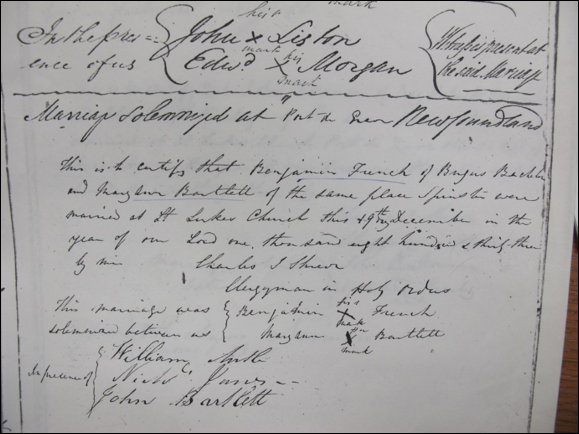 his mark
In the pres=
ence of us
John X Liston
mark his
Edwd X Morgan
mark
Witnesses present at
the said Marriage
Marriage Solemnized at Port de Grave Newfoundland
This is to certify that Benjamin French of Brigus Bachelor
and Maryann Bartlett of the same place Spinster were
married at St Lukes Church this 19th December in the
year of our Lord one thousand eight hundred & thirty three
by me Charles J Shreve
Clergyman in Holy Orders
This marriage was
solemnized between us
Benjamin his X mark French
Maryann her X mark Bartlett
In presence of
William
Nichs Jones
John Bartlett